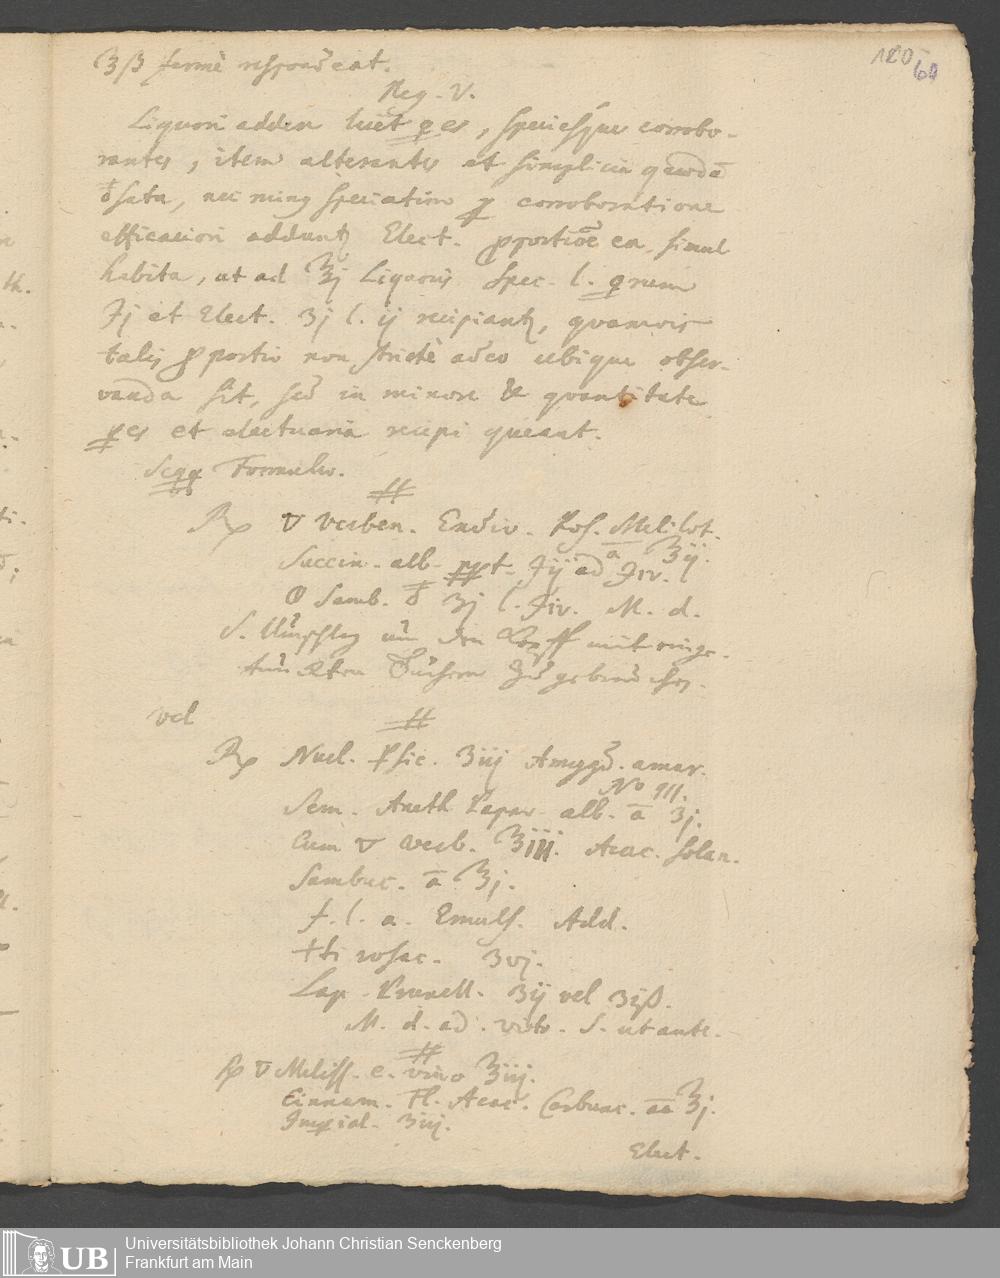 120 60
ʒß fermè respondeat.
Reg. V.
Liquori adden licet pes, speciesque corrobo-
rantes, item alterantes et simplicia quaedã
sata, nec minus speciatim ꝓ corroboratione
efficaciori adduntꝫ Elect. ꝓportiõe ea simul
habita, ut ad ℥j Liquoris Spec. l. rum
℈j et Elect. ʒj l. ij recipiantꝫ, quamvis
talis ꝓportio non strictè adeo ubique obser-
vanda sit, sed in minore & quantitate
pes et electuaria recipi queant.
Seqq Formulis.
#
℞ ▽ Verben. Endiv. Ros. Melilot.
ā ℥ij.
Succin. alb. ppt. ℈ij ad ℈iv.
Samb. ʒj l. ℈iv. M. d.
S. Umschlag um den Kopff mit einge-
tunckten Tüchern Zu gebrauchen.
vel #
℞ Nucl. Psic. ʒiij Amygd. amar.
No III.
Sem. Aneth Papav alb. ā ʒj.
Cum ▽ Verb. ℥iii. Acac. solan.
Sambuc. ā ℥j.
f. l. a. Emuls. Add.
+ti rosac. ʒvj.
Lap. Prunell. ʒij vel ʒijß.
M. d. ad. vitr. S. ut ante.
#
℞ ▽ Meliss. c. vino ℥iij.
Cinnam. Fl. Acac. Carbunc. aā ℥j.
Imperial. ʒiij.
Elect.
UB
Universitätsbibliothek Johann Christian Senckenberg
Frankfurt am Main